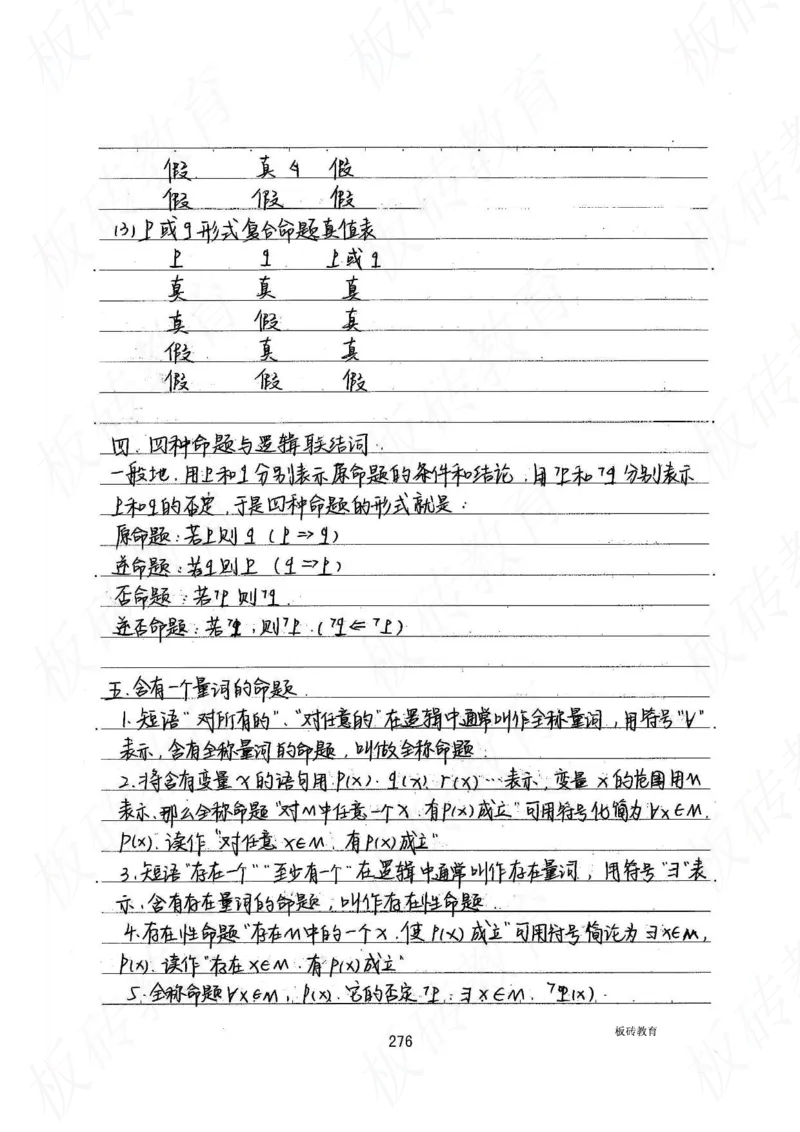 假 真 假
假 假 假
(3) p或q形式复合命题真值表
p q p或q
真 真 真
真 假 真
假 真 真
假 假 假
四.四种命题与逻辑联结词.
一般地.用p和q分别表示原命题的条件和结论,用¬p和¬q分别表示
p和q的否定,于是四种命题的形式就是:
原命题:若p则q(p⇒q)
逆命题:若q则p(q⇒p)
否命题:若¬p则¬q.
逆否命题:若¬q,则¬p.(¬q⇐¬p)
五.含有一个量词的命题.
1.短语"对所有的"、"对任意的"在逻辑中通常叫作全称量词,用符号"∀"
表示,含有全称量词的命题,叫做全称命题.
2.将含有变量x的语句用p(x).q(x).r(x)…表示,变量x的范围用M
表示.那么全称命题"对M中任意一个x.有p(x)成立"可用符号化简为∀x∈M,
p(x).读作"对任意x∈M.有p(x)成立"
3.短语"存在一个""至少有一个"在逻辑中通常叫作存在量词,用符号"∃"表
示,含有存在量词的命题,叫作存在性命题.
4.存在性命题"存在M中的一个x.使p(x)成立"可用符号简论为∃x∈M,
p(x).读作"存在x∈M.有p(x)成立"
5.全称命题∀x∈M,p(x).它的否定¬p:∃x∈M.¬p(x).
276
板砖教育